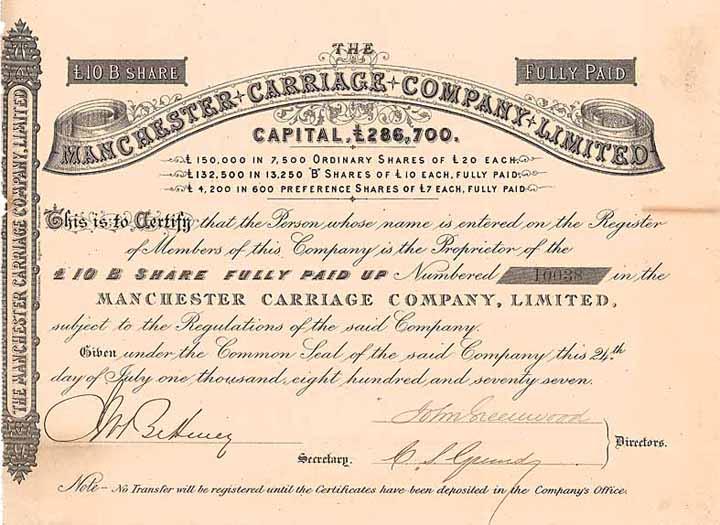 THE
£10 B SHARE
FULLY PAID
MANCHESTER CARRIAGE COMPANY LIMITED
CAPITAL, £286,700.
£150,000 IN 7,500 ORDINARY SHARES OF £20 EACH.
£132,500 IN 13,250 "B" SHARES OF £10 EACH, FULLY PAID.
£4,200 IN 600 PREFERENCE SHARES OF £7 EACH, FULLY PAID
This is to Certify that the Person whose name is entered on the Register
of Members of this Company is the Proprietor of the
£10 B SHARE FULLY PAID UP Numbered 10038 in the
MANCHESTER CARRIAGE COMPANY, LIMITED,
subject to the Regulations of the said Company.
Given under the Common Seal of the said Company this 24th
day of July one thousand, eight hundred and seventy seven.
John Greenwood
Directors.
Secretary.
Note - No Transfer will be registered until the Certificates have been deposited in the Company's Office.
THE MANCHESTER CARRIAGE COMPANY, LIMITED